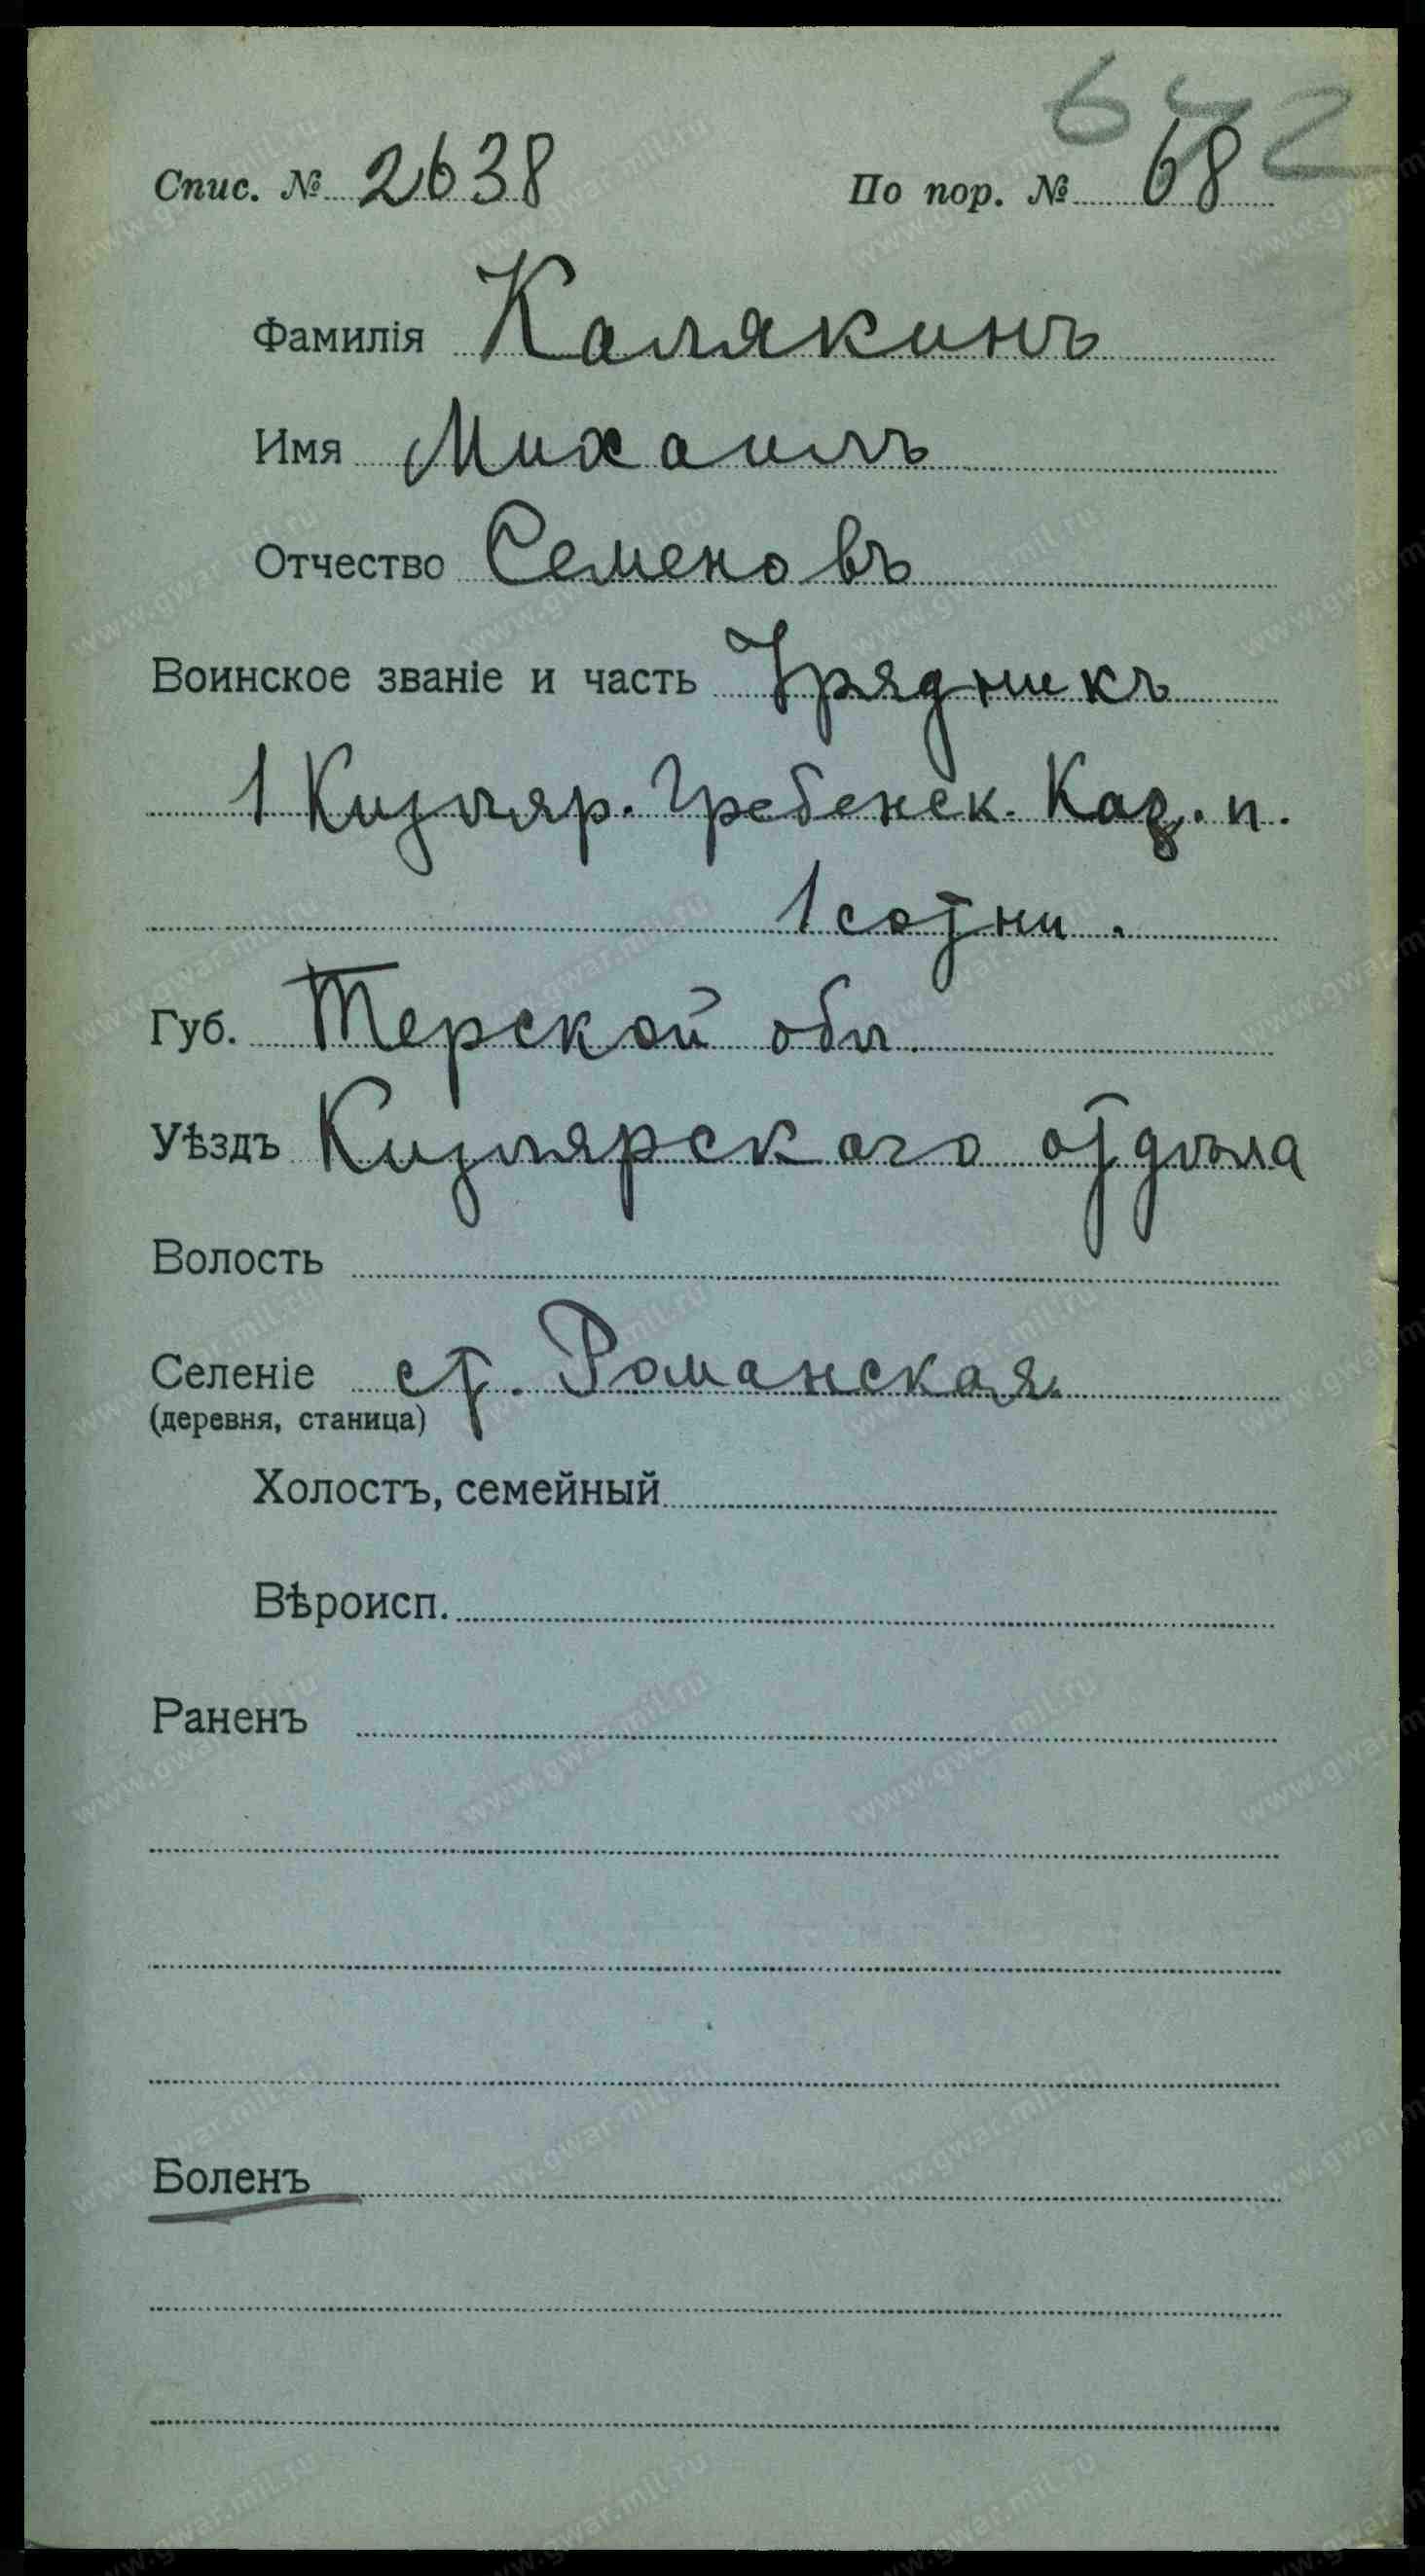 642
Спис. № 2638 По пор. № 68
Фамилія Калякинъ
Имя Михаилъ
Отчество Семеновъ
Воинское званіе и часть Урядникъ
1 Кизляр. Гребенск. Каз. п.
1 сотни.
Губ. Терской обл.
Уѣздъ Кизлярскаго отдѣла
Волость
Селеніе ст. Романская
(деревня, станица)
Холостъ, семейный
Вѣроисп.
Раненъ
Боленъ
www.gwar.mil.ru